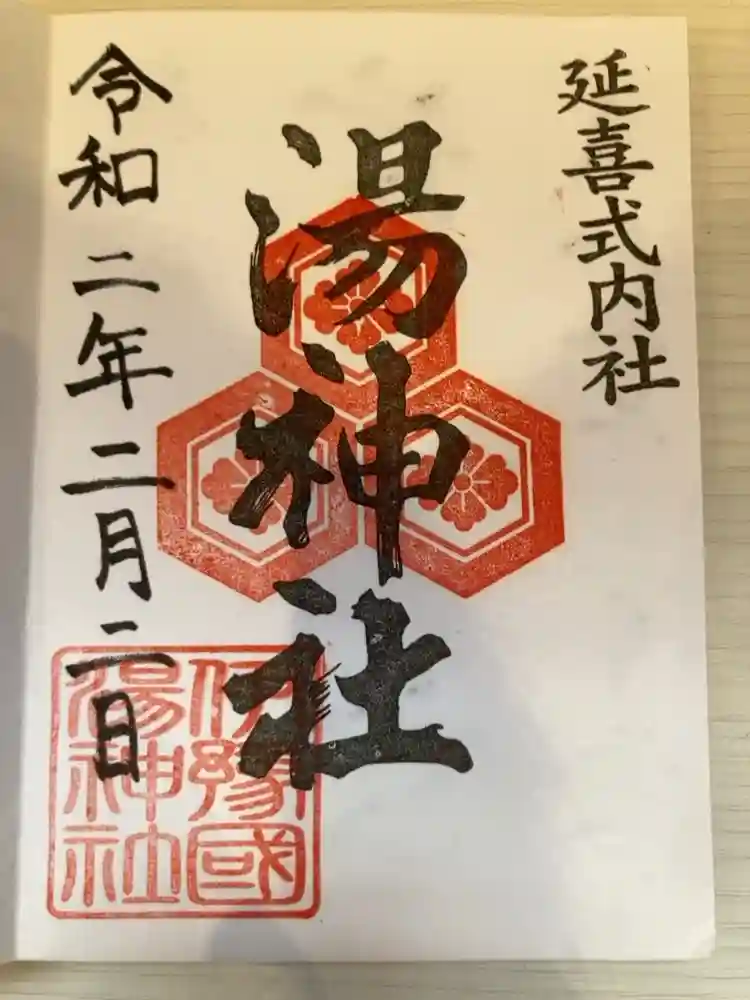 延喜式内社
湯神社
伊豫國
湯神社
令和二年二月二日